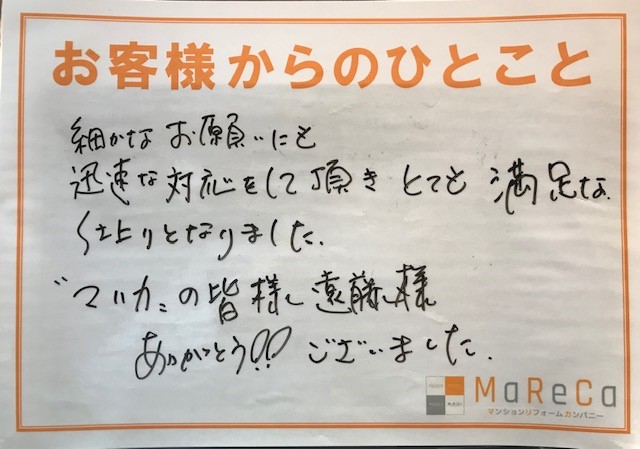 お客様からのひとこと
細かなお願いにも
迅速な対応をして頂き とても 満足な
仕上りとなりました.
の皆様 遠藤様
ありがとう!! ございました.
MaReCa
マンションリフォームカンパニー